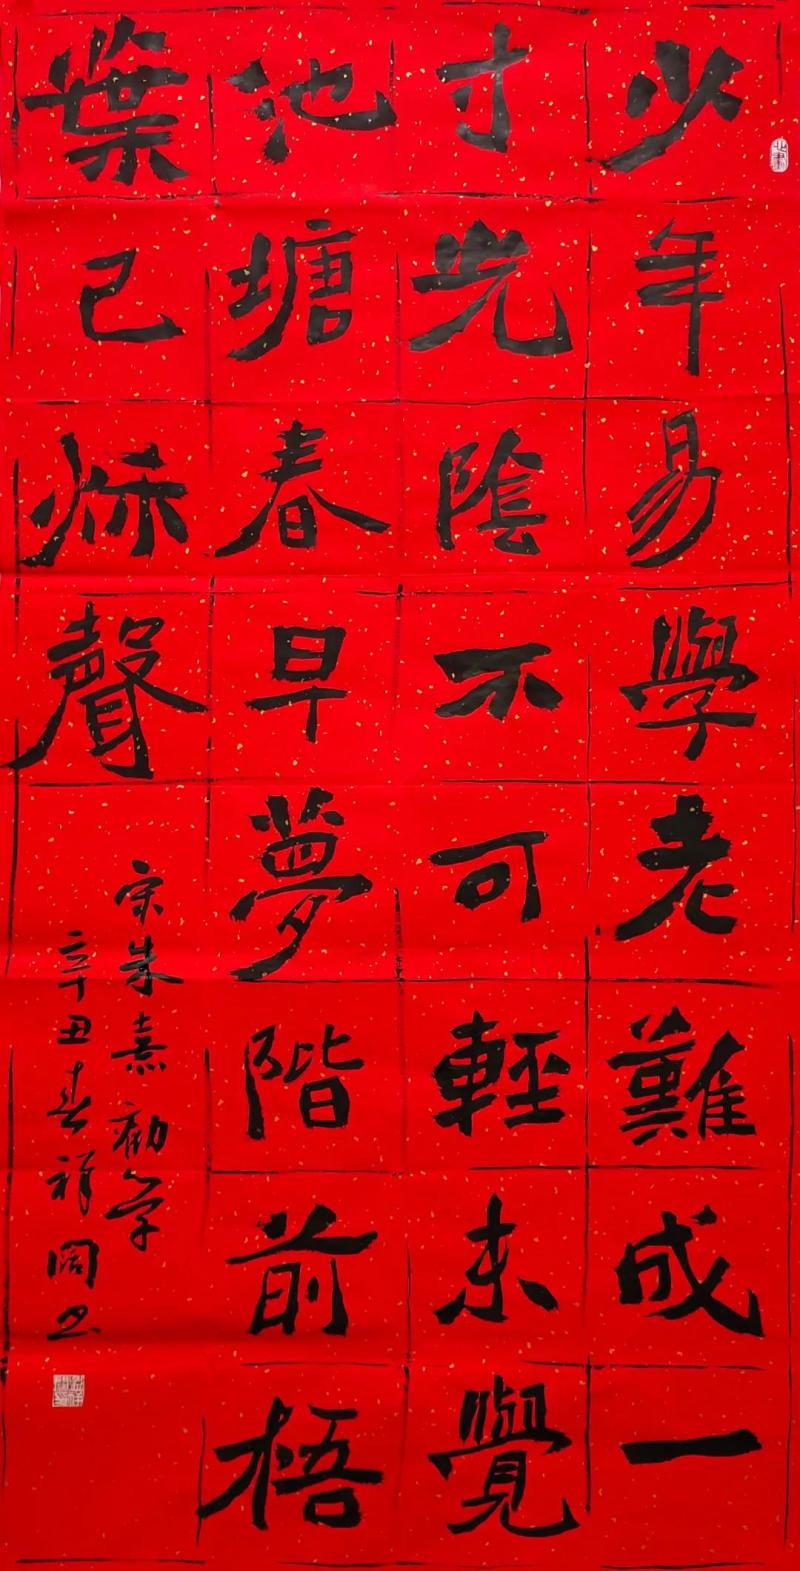 少年易學老難成一
寸光陰不可輕未覺
池塘春早夢階前梧
葉已秌聲
宋朱熹勸学
辛丑春祥阔书